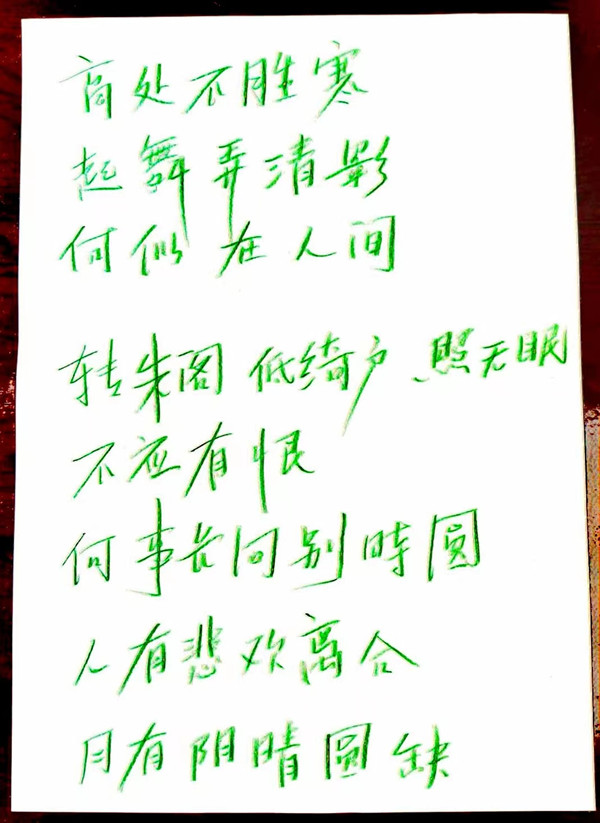 高处不胜寒
起舞弄清影
何似在人间
转朱阁 低绮户 照无眠
不应有恨
何事长向别时圆
人有悲欢离合
月有阴晴圆缺